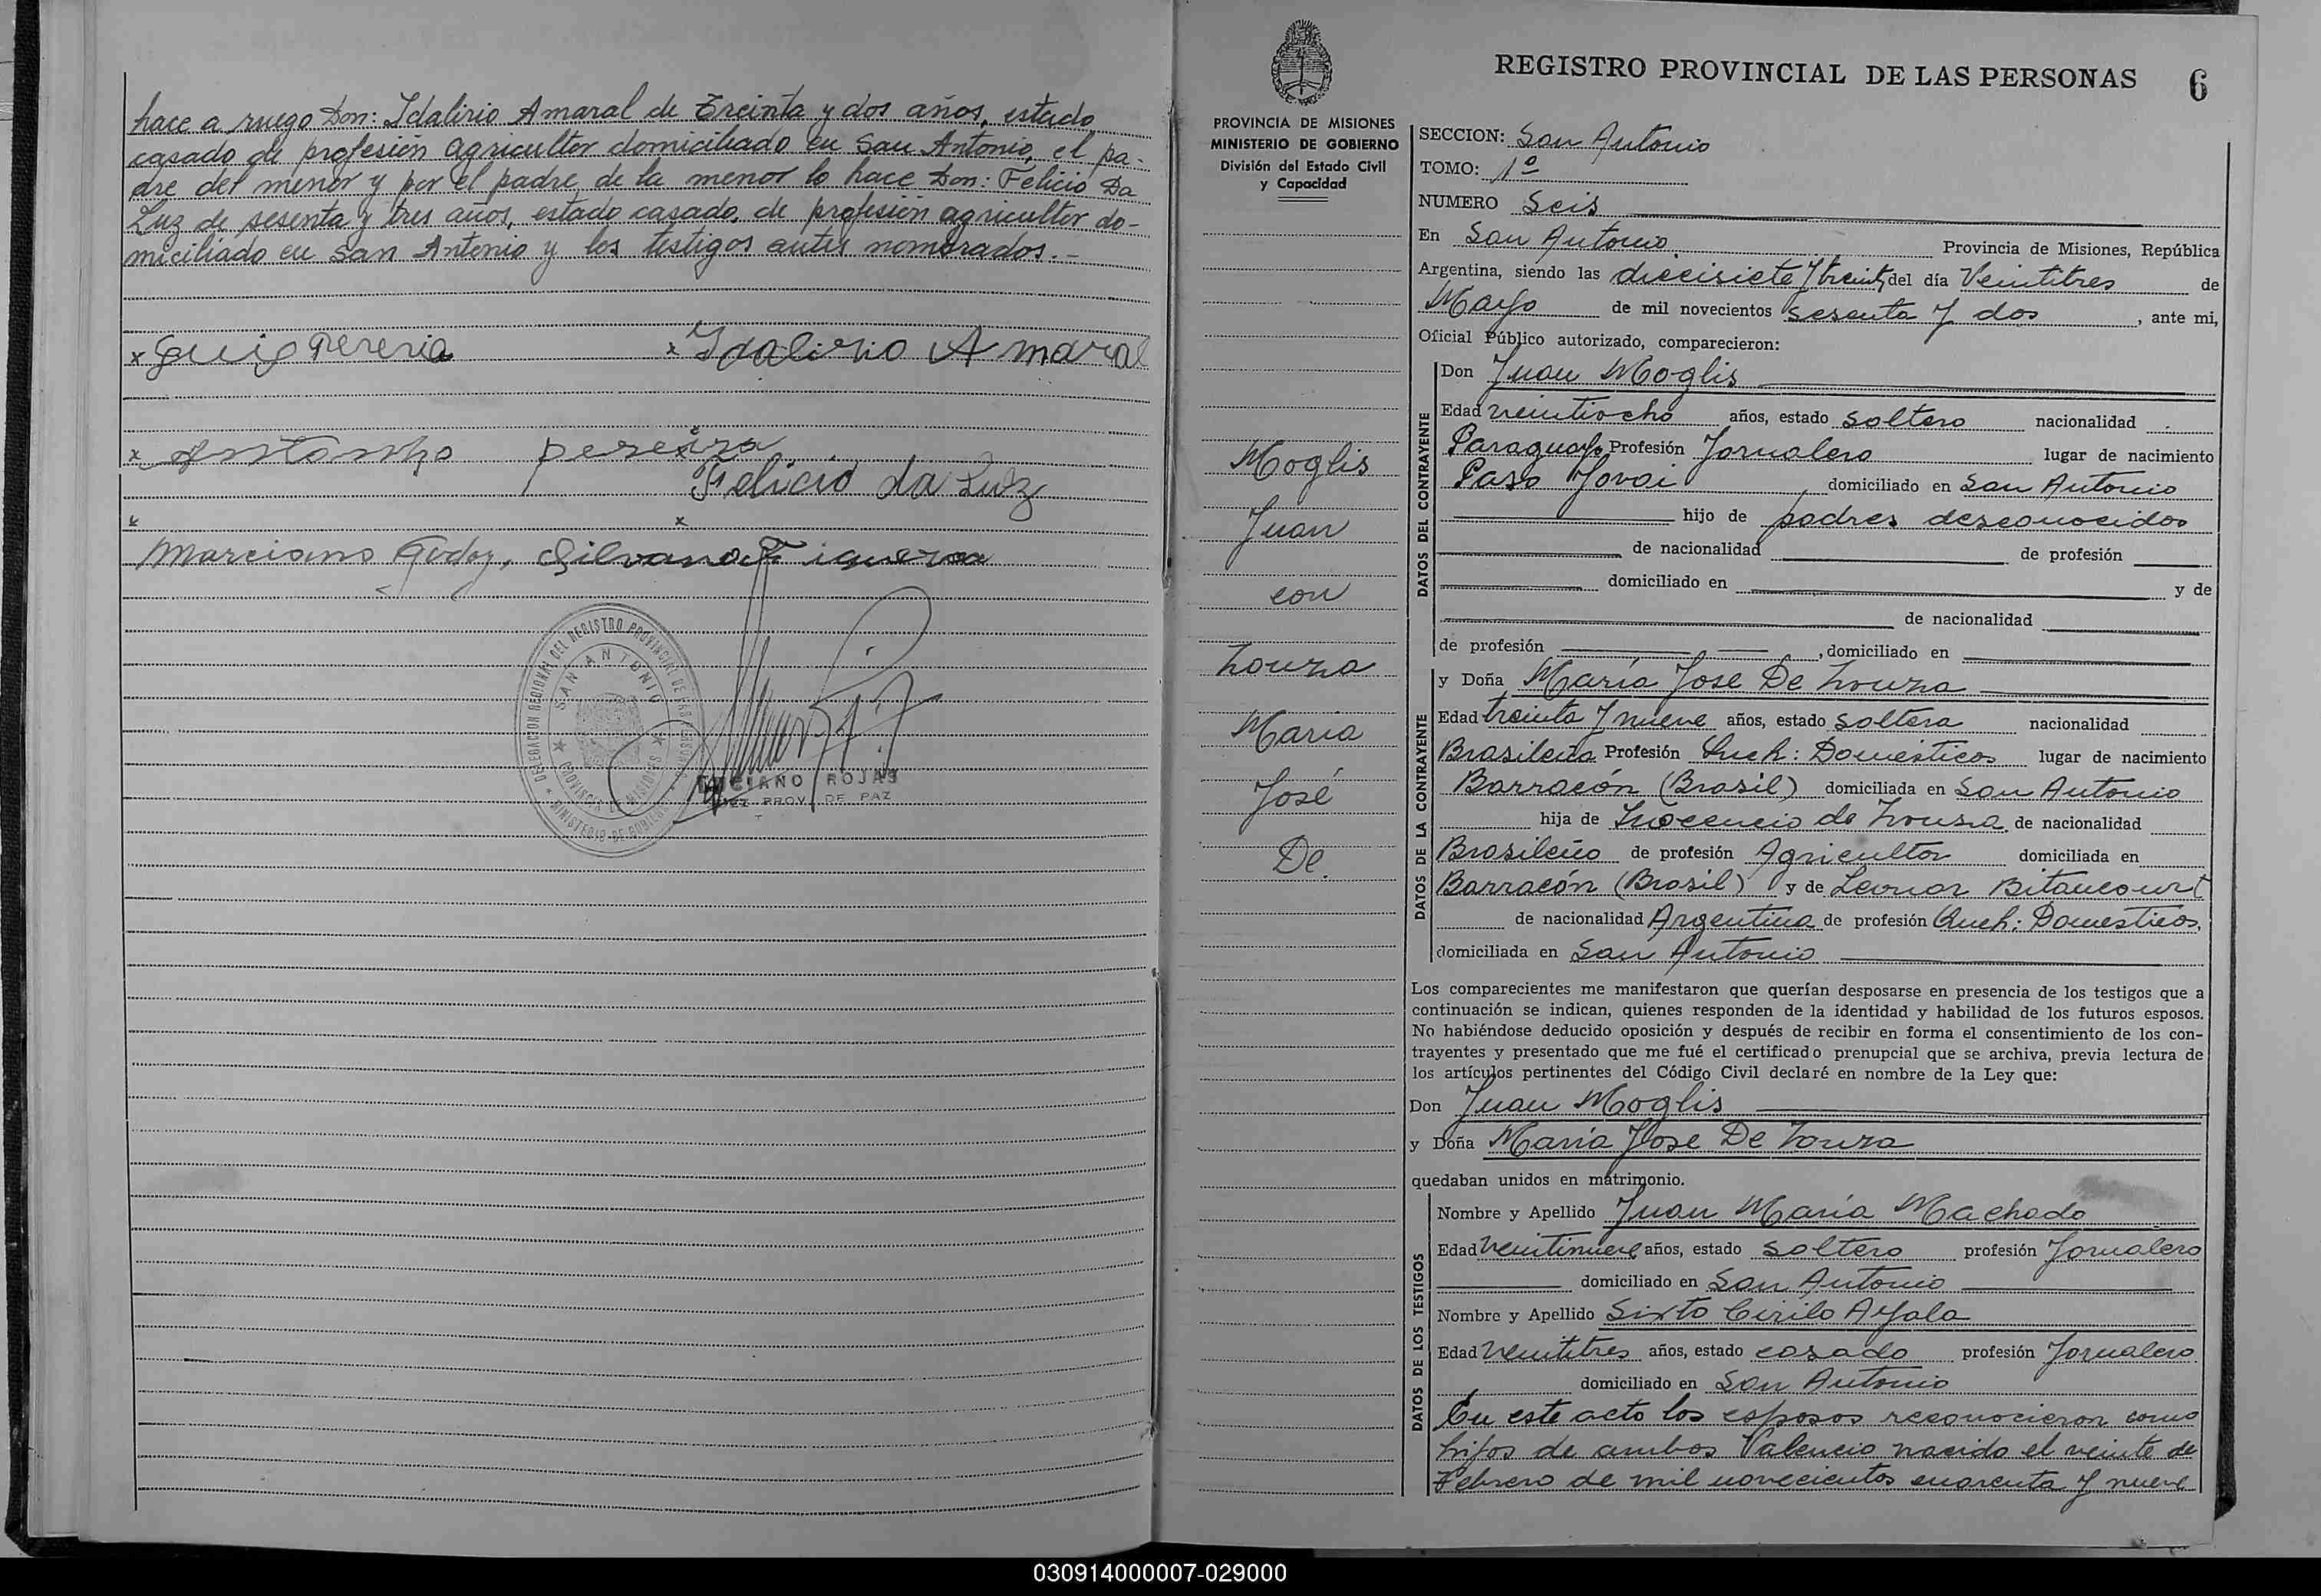 hace a ruego Don: Idalirio Amaral de Treinta y dos años, estado
casado de profesión agricultor domiciliado en San Antonio, el pa-
dre del menor y por el padre de la menor lo hace Don: Felicio Da
Luz de sesenta y tres años, estado casado, de profesión agricultor do-
miciliado en San Antonio y los testigos antes nombrados.-
x Idalirio Amaral
x Antonho pereira
Felicio da Luz
x x
Marciano Godoy, Silvano Figueroa
DELEGACION REGIONAL DEL REGISTRO PROVINCIAL DE LAS PERSONAS
SAN ANTONIO
PROVINCIA DE MISIONES
MINISTERIO DE GOBIERNO
LUCIANO ROJAS
JUEZ PROV. DE PAZ
REGISTRO PROVINCIAL DE LAS PERSONAS 6
PROVINCIA DE MISIONES
MINISTERIO DE GOBIERNO
División del Estado Civil
y Capacidad
Moglis
Juan
con
Souza
María
José
De.
SECCION: San Antonio
TOMO: 1º
NUMERO Seis
En San Antonio Provincia de Misiones, República
Argentina, siendo las diecisiete y treinta del día Veintitres de
Mayo de mil novecientos sesenta y dos, ante mi,
Oficial Público autorizado, comparecieron:
DATOS DEL CONTRAYENTE
Don Juan Moglis
Edad veintiocho años, estado soltero nacionalidad
Paraguayo Profesión Jornalero lugar de nacimiento
Paso Yovai domiciliado en San Antonio
hijo de padres desconocidos
de nacionalidad de profesión
domiciliado en y de
de nacionalidad
de profesión , domiciliado en
DATOS DE LA CONTRAYENTE
y Doña María Jose De Souza
Edad treinta y nueve años, estado soltera nacionalidad
Brasileña Profesión Queh: Domésticos lugar de nacimiento
Barracón (Brasil) domiciliada en San Antonio
hija de Inocencio de Souza de nacionalidad
Brasileño de profesión Agricultor domiciliada en
Barracón (Brasil) y de Leonor Bitancourt
de nacionalidad Argentina de profesión Queh: Domesticos,
domiciliada en San Antonio
Los comparecientes me manifestaron que querían desposarse en presencia de los testigos que a
continuación se indican, quienes responden de la identidad y habilidad de los futuros esposos.
No habiéndose deducido oposición y después de recibir en forma el consentimiento de los con-
trayentes y presentado que me fué el certificado prenupcial que se archiva, previa lectura de
los artículos pertinentes del Código Civil declaré en nombre de la Ley que:
Don Juan Moglis
y Doña María Jose De Souza
quedaban unidos en matrimonio.
DATOS DE LOS TESTIGOS
Nombre y Apellido Juan María Machado
Edad Veintinueve años, estado soltero profesión Jornalero
domiciliado en San Antonio
Nombre y Apellido Sixto Cirilo Ayala
Edad Veintitres años, estado casado profesión Jornalero
domiciliado en San Antonio
En este acto los esposos reconocieron como
hijos de ambos Valencio nacido el veinte de
Febrero de mil novecientos cuarenta y nueve
030914000007-029000